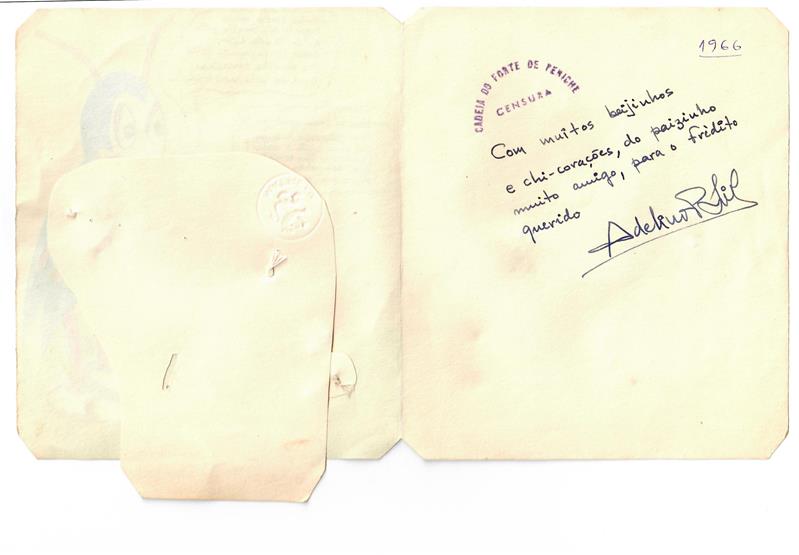 1966
CADEIA DO FORTE DE PENICHE
CENSURA
Com muitos beijinhos
e chi-corações, do paizinho
muito amigo, para o Fredito
querido